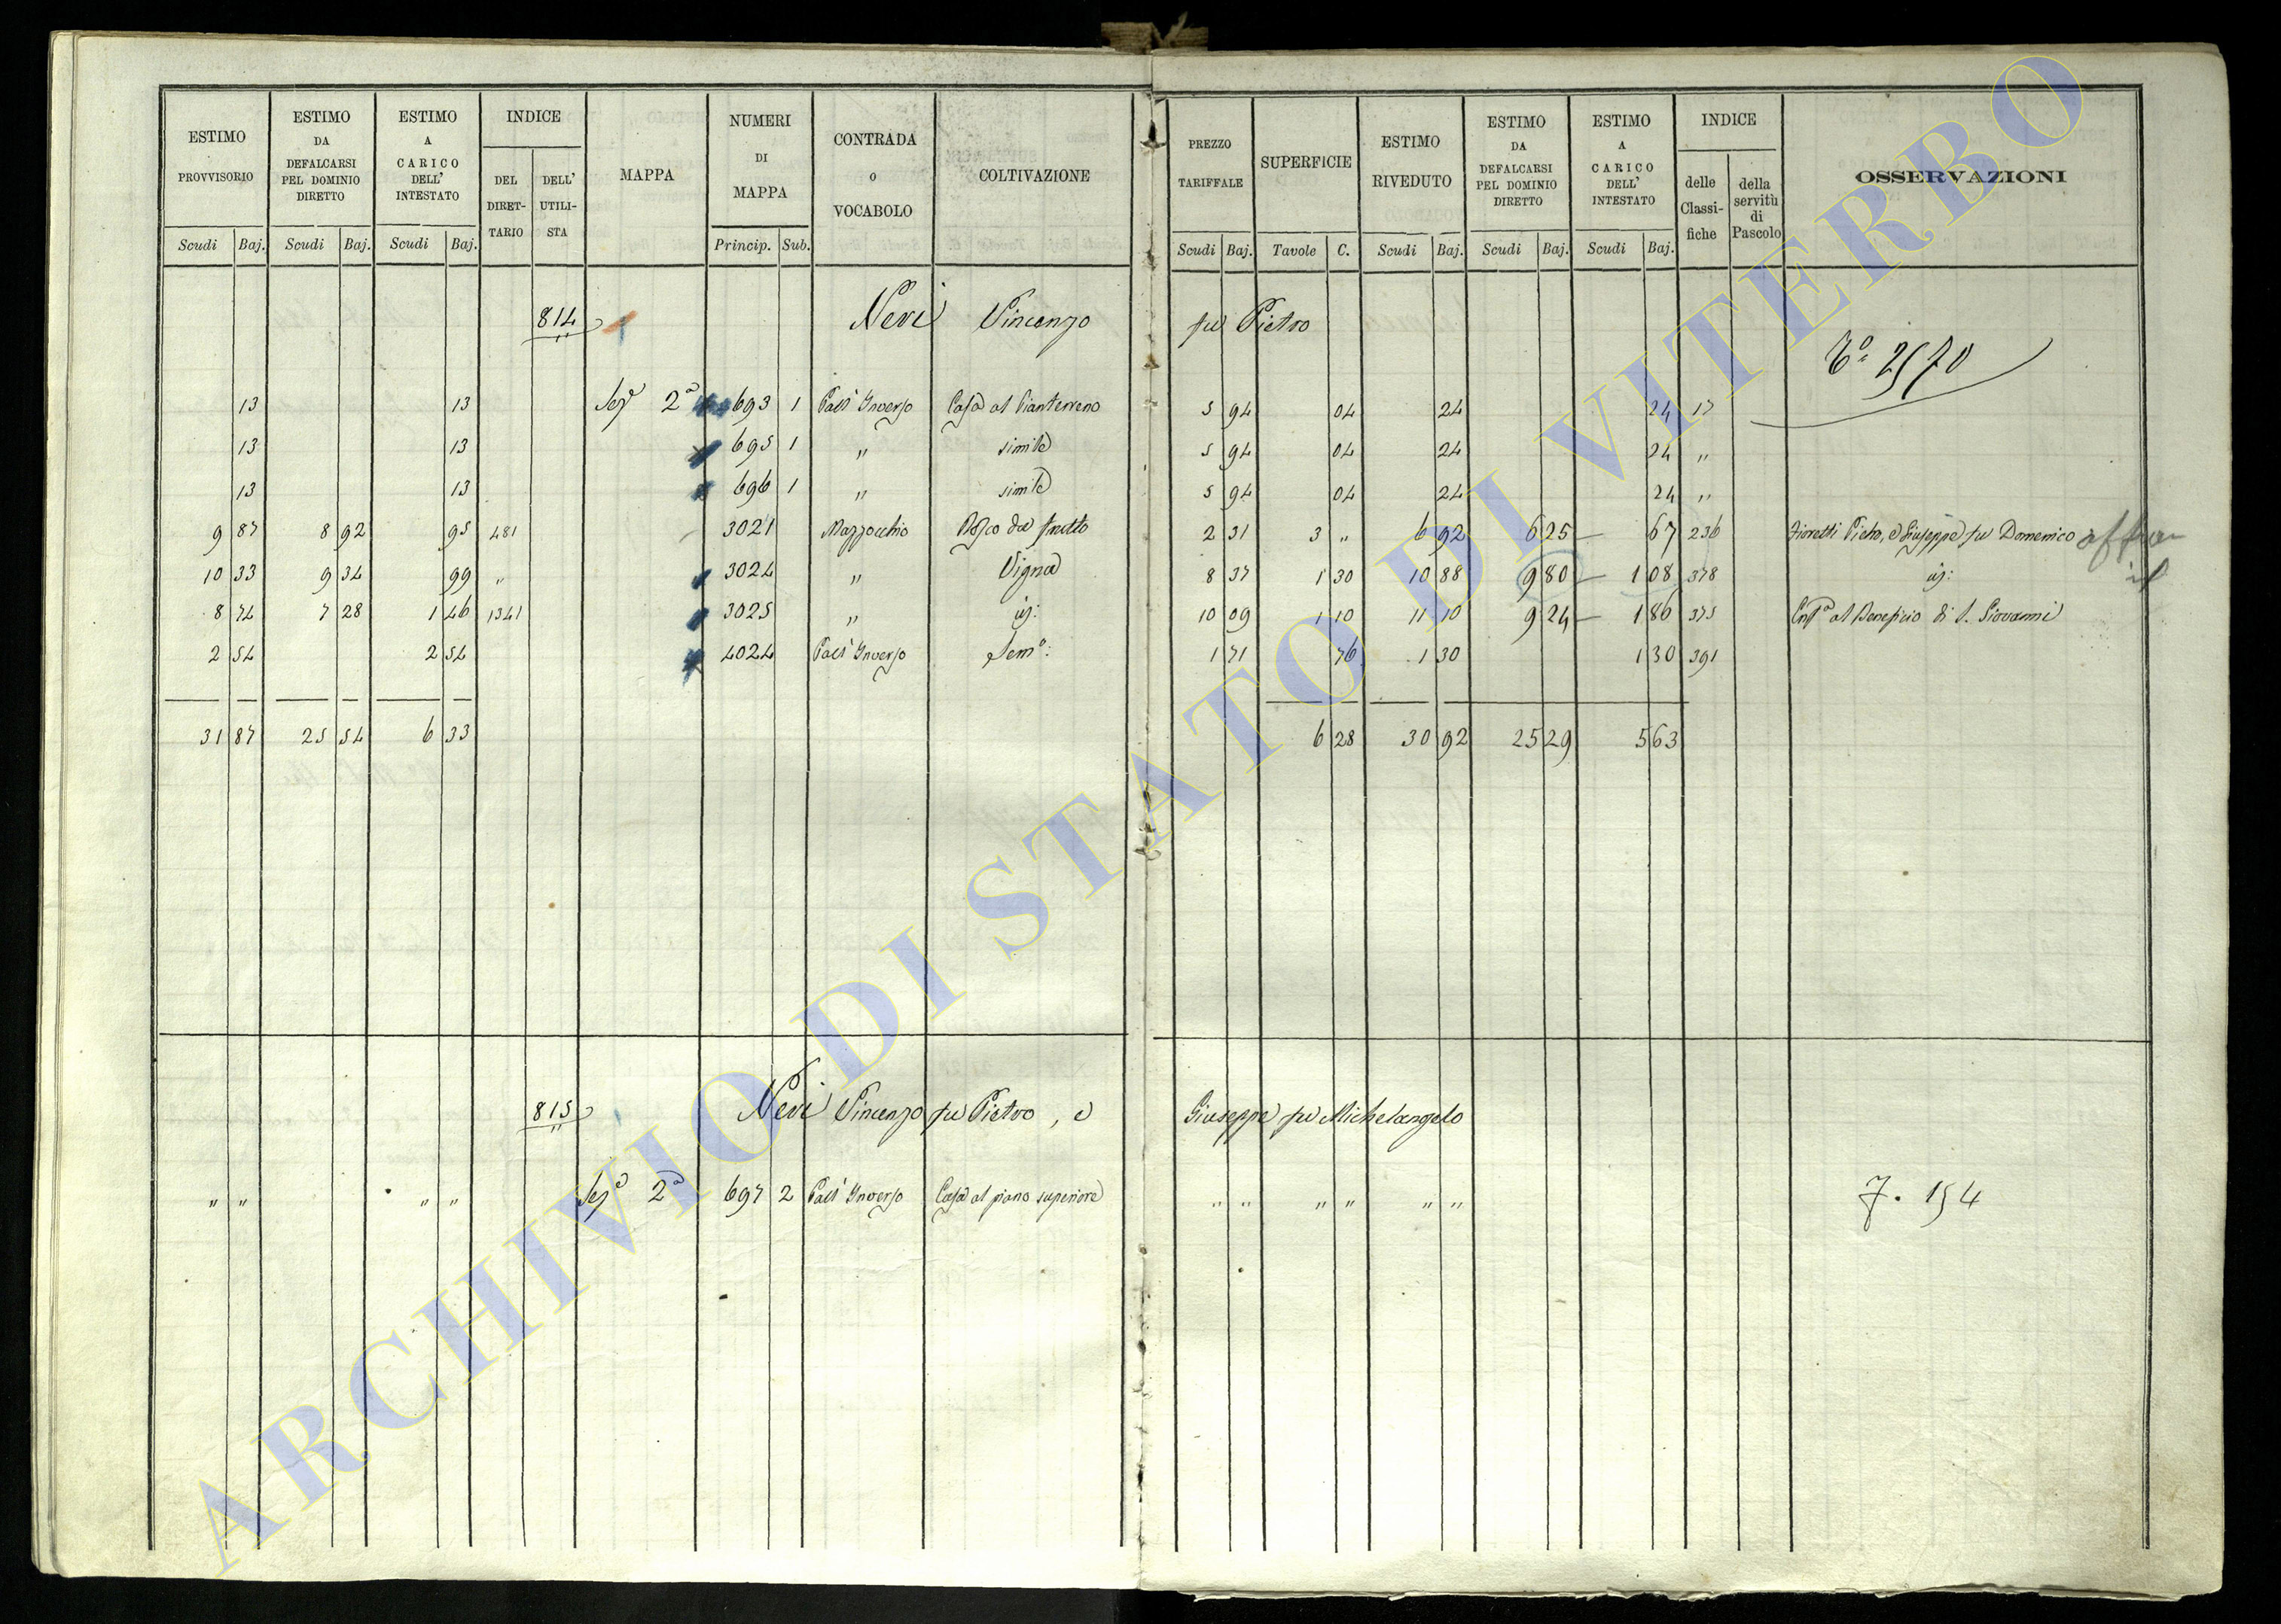 ESTIMO PROVVISORIO | ESTIMO DA DEFALCARSI PEL DOMINIO DIRETTO | ESTIMO A CARICO DELL' INTESTATO | INDICE DEL DIRETTARIO | DELL' UTILISTA | MAPPA | NUMERI DI MAPPA | CONTRADA o VOCABOLO | COLTIVAZIONE | PREZZO TARIFFALE | SUPERFICIE | ESTIMO RIVEDUTO | ESTIMO DA DEFALCARSI PEL DOMINIO DIRETTO | ESTIMO A CARICO DELL' INTESTATO | INDICE delle Classifiche | della servitù di Pascolo | OSSERVAZIONI
Scudi Baj. | Scudi Baj. | Scudi Baj. | Princip. Sub. | Scudi Baj. | Tavole C. | Scudi Baj. | Scudi Baj. | Scudi Baj.
814 Nevi Vincenzo fu Pietro
2570
13 | 13 | Sezᵉ 2ª | 693 1 | Paes' Inverso | Casa al Pianterreno | 5 94 | 04 | 24 | 24 | 17
13 | 13 | 695 1 | " | simile | 5 94 | 04 | 24 | 24 | "
13 | 13 | 696 1 | " | simile | 5 94 | 04 | 24 | 24 | "
9 87 | 8 92 | 95 | 481 | 3021 | Mazzocchio | Bosco da frutto | 2 31 | 3 " | 6 92 | 6 25 | 67 | 236 | Fioretti Pietro, e Giuseppe fu Domenico
10 33 | 9 34 | 99 | " | 3024 | " | Vigna | 8 37 | 1 30 | 10 88 | 9 80 | 1 08 | 378 | id:
8 74 | 7 28 | 1 46 | 1341 | 3025 | " | id: | 10 09 | 1 10 | 11 10 | 9 24 | 1 86 | 375 | al Beneficio di S. Giovanni
2 54 | 2 54 | 4024 | Paes' Inverso | Semº: | 1 71 | 76 | 1 30 | 1 30 | 391
31 87 | 25 54 | 6 33 | 6 28 | 30 92 | 25 29 | 5 63
815 Nevi Vincenzo fu Pietro, e Giuseppe fu Michelangelo
" " | " " | Sezᵉ 2ª | 697 2 | Paes' Inverso | Casa al piano superiore | " " | " " | " " | 7. 154
ARCHIVIO DI STATO DI VITERBO